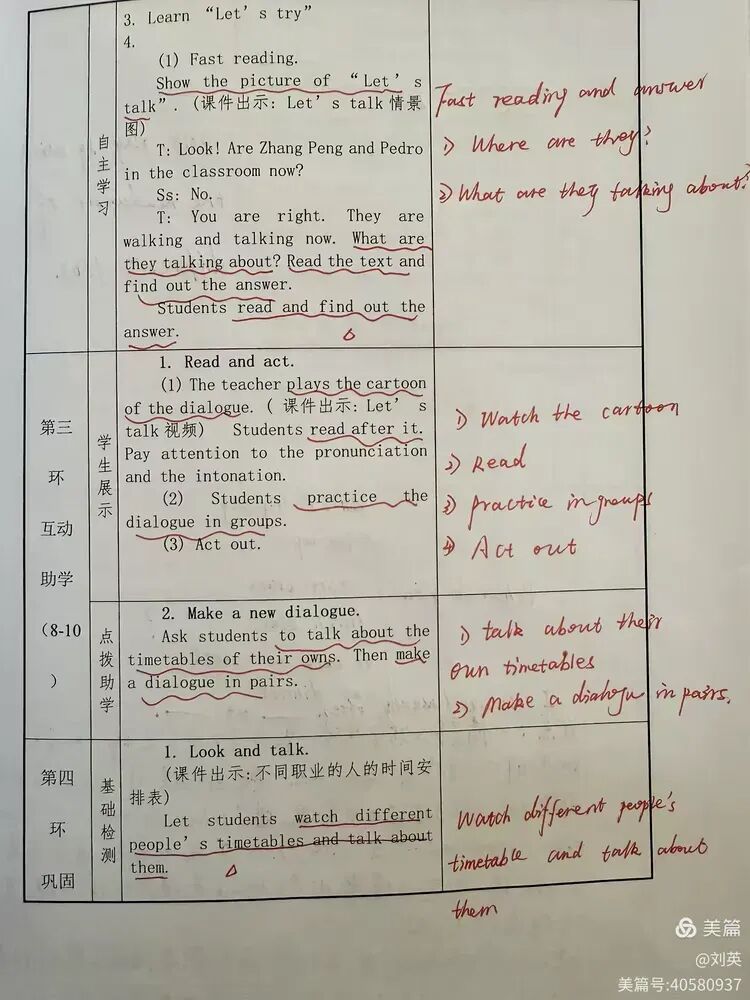 3. Learn “Let’s try”
4.
(1) Fast reading.
Show the picture of “Let’s
talk”. (课件出示: Let’s talk 情景
图)
T: Look! Are Zhang Peng and Pedro
in the classroom now?
Ss: No.
T: You are right. They are
walking and talking now. What are
they talking about? Read the text and
find out the answer.
Students read and find out the
answer.
自主学习
Fast reading and answer
1) Where are they?
2) What are they talking about?
第三
环
互动
助学
(8-10
)
学生展示
1. Read and act.
(1) The teacher plays the cartoon
of the dialogue. ( 课件出示: Let’s
talk 视频) Students read after it.
Pay attention to the pronunciation
and the intonation.
(2) Students practice the
dialogue in groups.
(3) Act out.
1) Watch the cartoon
2) Read
3) practice in groups
4) Act out
点拨助学
2. Make a new dialogue.
Ask students to talk about the
timetables of their owns. Then make
a dialogue in pairs.
1) talk about their
own timetables
2) Make a dialogu in pairs.
第四
环
巩固
基础检测
1. Look and talk.
(课件出示:不同职业的人的时间安
排表)
Let students watch different
people’s timetables and talk about
them.
Watch different people's
timetable and talk about
them
美篇
@刘英
美篇号:40580937